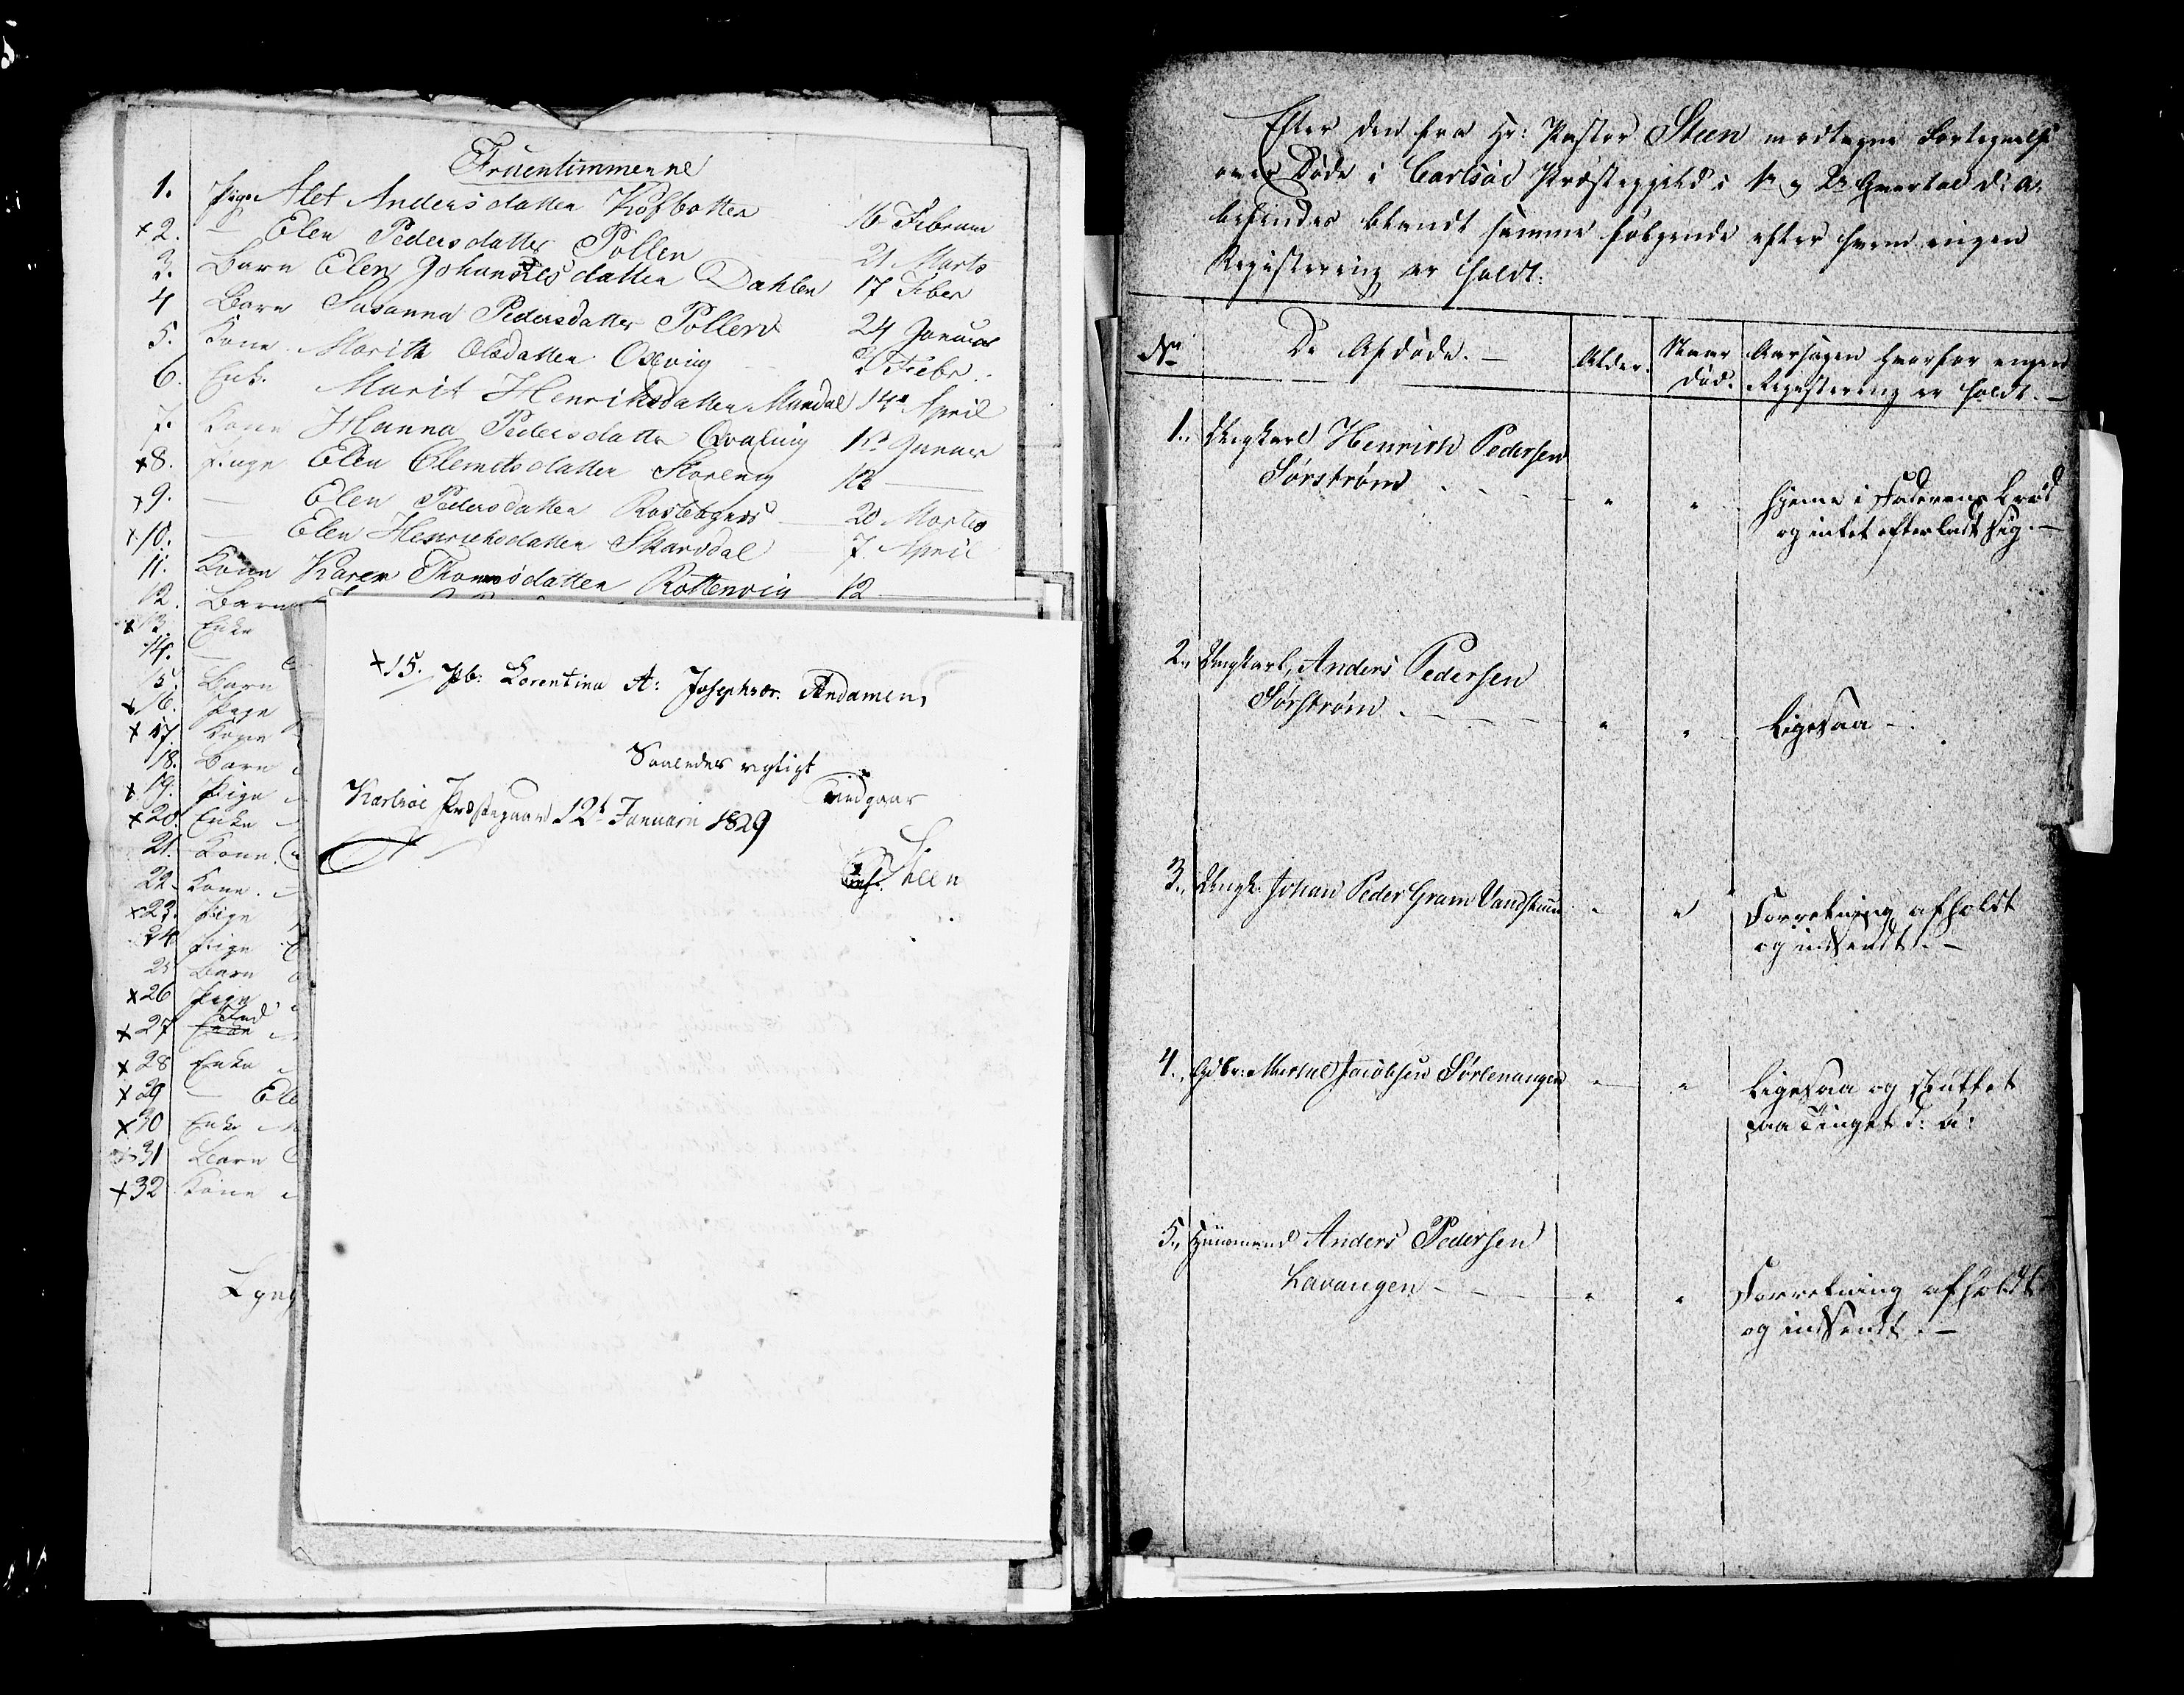 Fruentimmerne
1. Pige Alet Andersdatter Kofbotten 16 Februar
x 2. — Elen Pedersdatter Pollen 21 Marts
3. Barn Elen Johannesdatter Dahlen 17 Febr
4 Barn Susanna Pedersdatter Pollen 24 Januar
5. Kone Marith Olsdatter Oxevig 2 Febr.
6. Enke Marit Henriksdatter Mandal 14de April
7. Kone Hanna Pedersdatter Qvalvig Januar
x8. Pige Elen Clemetsdatter 12 —
x9. — Elen Pedersdatter 20 Martes
x10. — Elen Henrichsdatter Skarvdal 7 April
11. Kone Karen Thomsdatter Rottenvig 12
12. Barn
x 13. Enke
14. —
15. Barn
x16. Pige
x 17. Kone
18. Barn
x 19. Pige
x20. Enke
21. Kone
22. Kone
x23. Pige
24. Pige
25 Barn
x26 Pige
x27
x28 Enke
x29 — Ele
x30 Enke
31 Barn
x32 Kone
Lyng
x15. Pb: Lorentina A: Josephsdr. Andamen,
Saaledes rigtigt
Karlsøe Præstegaard 12t Januari 1829
Steen
Efter den fra Hr: Pastor Steen modtagne Fortegnelse
over Døde i Carlsøe Præstegjeld i 1te og 2det Qvartal d: A:
befindes blandt samme følgende efter hvem ingen
Registering er holdt:
No De Afdøde. — Alder. Naar Aarsagen hvorfor ingen
død. Registering er holdt. —
1., Ungkarl Henrich Pedersen
Sørstrøm " " hjeme i Faderens Brød
og intet efterladt sig. —
2., Ungkarl, Anders Pedersen
Sørstrøm " " Ligesaa —
3., Ungk: Johan Peder Gram Vandstuen " " Forretning afholdt
og indsendt. —
4., Gdbr: Jacobsen Sørlenangen " " Ligesaa og sluttet
paa Tinget d: A:
5., Huusmand Anders Pedersen
Lavangen — " " Forretning afholdt
og indsendt. —